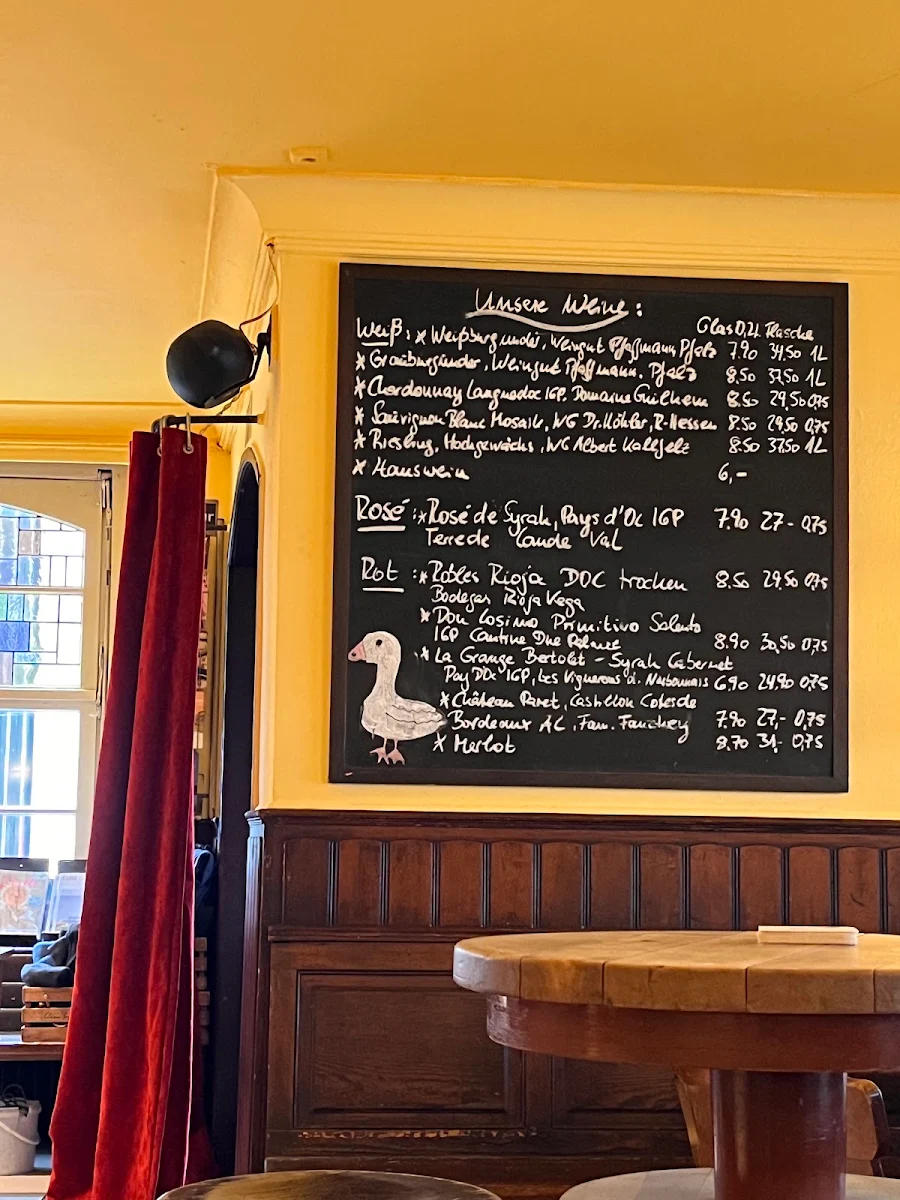 Unsere Weine:
Glas 0,2L Flasche
Weiß: * Weißburgunder, Weingut Pfaffmann Pfalz 7.90 34,50 1L
* Grauburgunder, Weingut Pfaffmann. Pfalz 8,50 37,50 1L
* Chardonnay Languedoc IGP. Domaine Guilhem 8.50 29,50 0,75
* Sauvignon Blanc Mosaik, WG Dr. Köhler, R-Hessen 8.50 29,50 0,75
* Riesling, Hochgewächs, WG Albert Kallfelz 8.50 37.50 1L
* Hauswein 6,-
Rosé: * Rosé de Syrah, Pays d'Oc IGP 7.90 27- 0,75
Terre de Val
Rot: * Robles Rioja DOC trocken 8.50 29,50 0,75
Bodegas Rioja Vega
* Don Cosimo Primitivo Salento
IGP Cantine Due Palme 8.90 30,50 0,75
* La Grange Bertolet - Syrah Cabernet
Pay D'Oc IGP, Les Vignerons d. Narbonnais 6.90 24,90 0,75
* Château Paret, Castillon Coteside
Bordeaux AC, Fam. 7.90 27,- 0,75
* Merlot 8,70 31,- 0,75